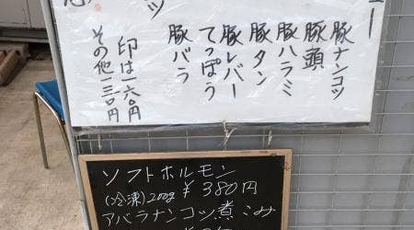 豚ナンコツ
豚頭
豚ハラミ
豚タン
豚レバー
てっぽう
豚バラ
印は一六〇円
その他一三〇円
ソフトホルモン
(冷凍)200g ¥380円
アバラナンコツ煮こみ